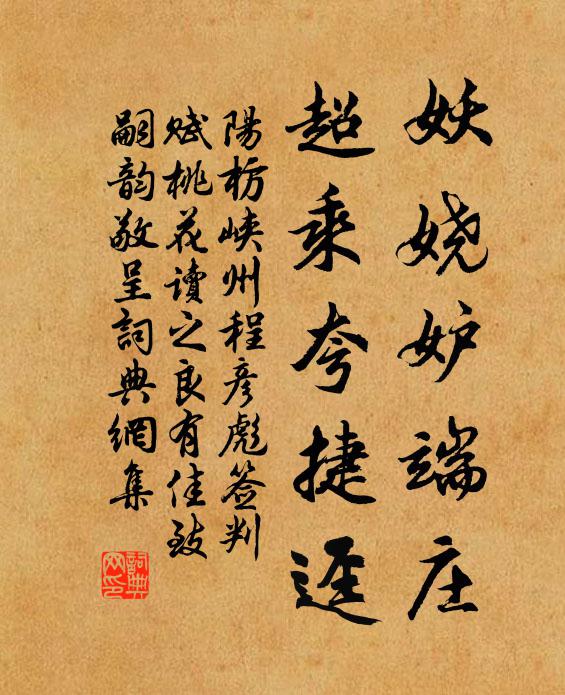 妖娆妒端庄
超乘夸捷迳
陽枥峡州程彦彪签判
赋桃花读之良有佳致
嗣韵敬呈詞典網集
詞典
网印